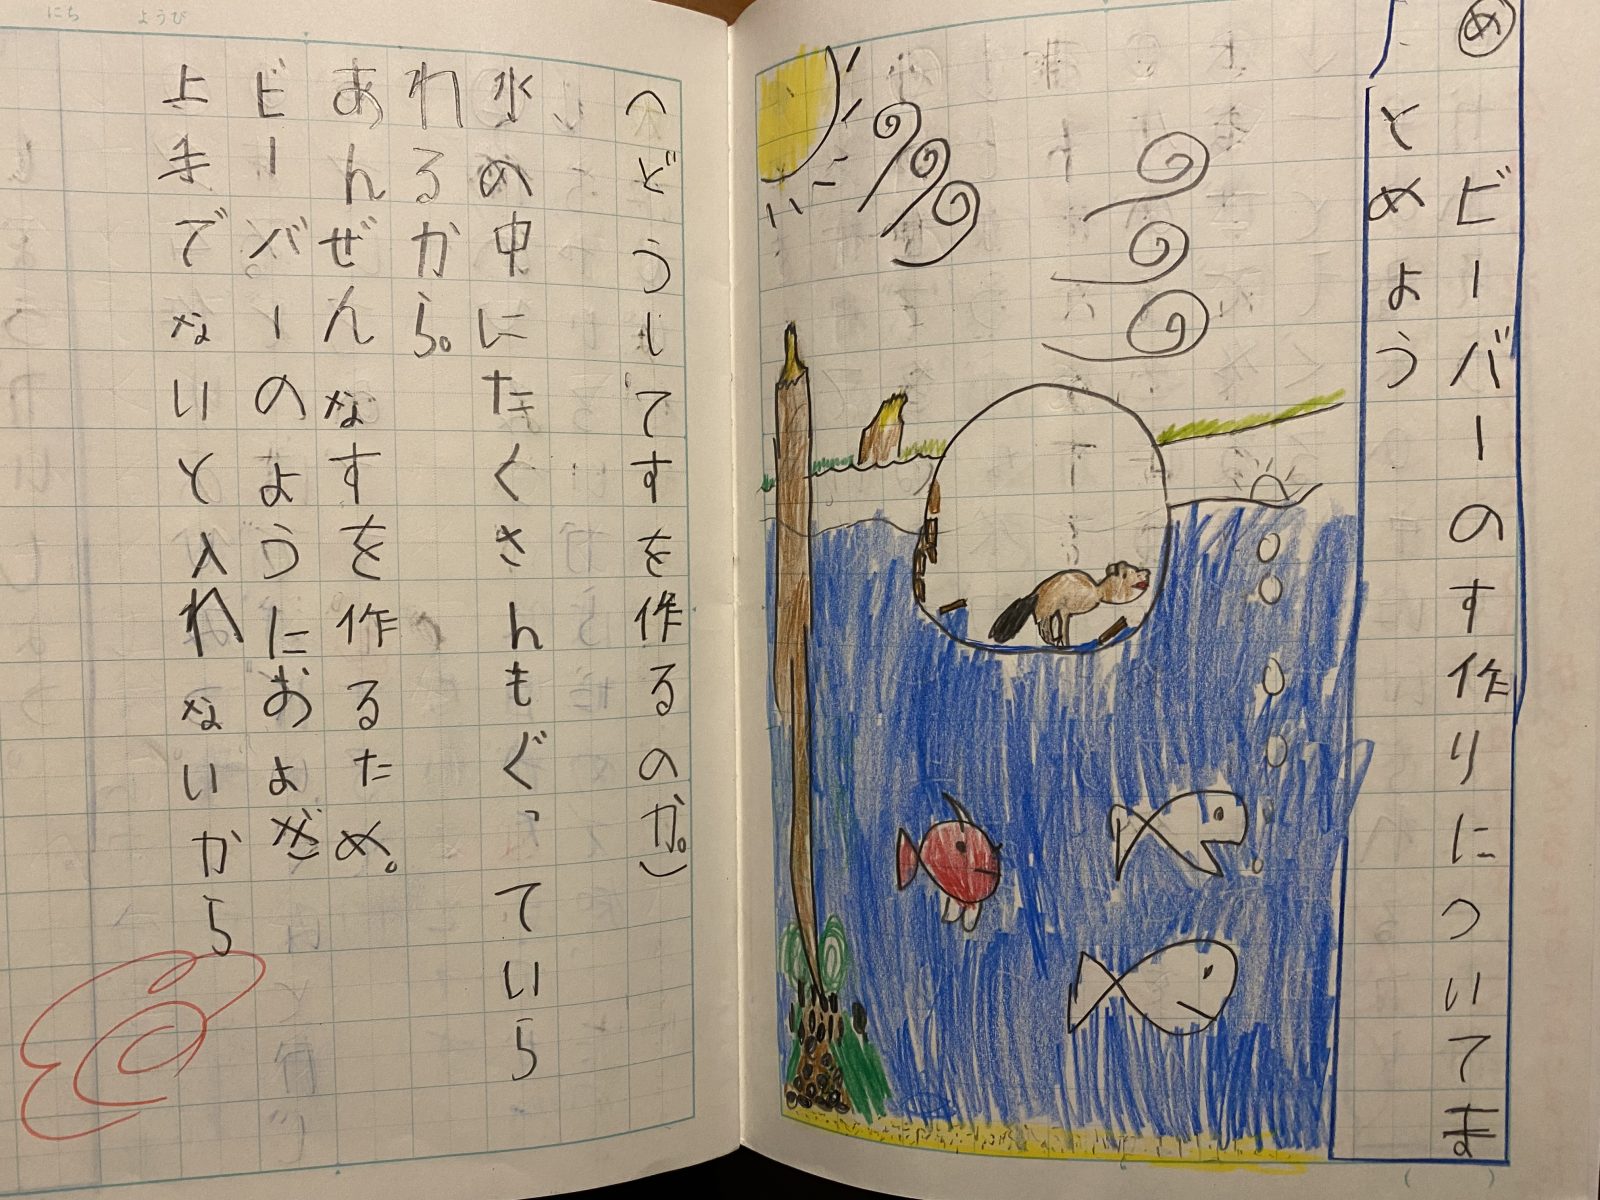 め ビーバーのす作りについてま
とめよう
（どうしてすを作るのか。）
水の中にたくさんもぐっていら
れるから。
あんぜんなすを作るため。
ビーバーのようにおよ
上手でないと入れないから
にち ようび